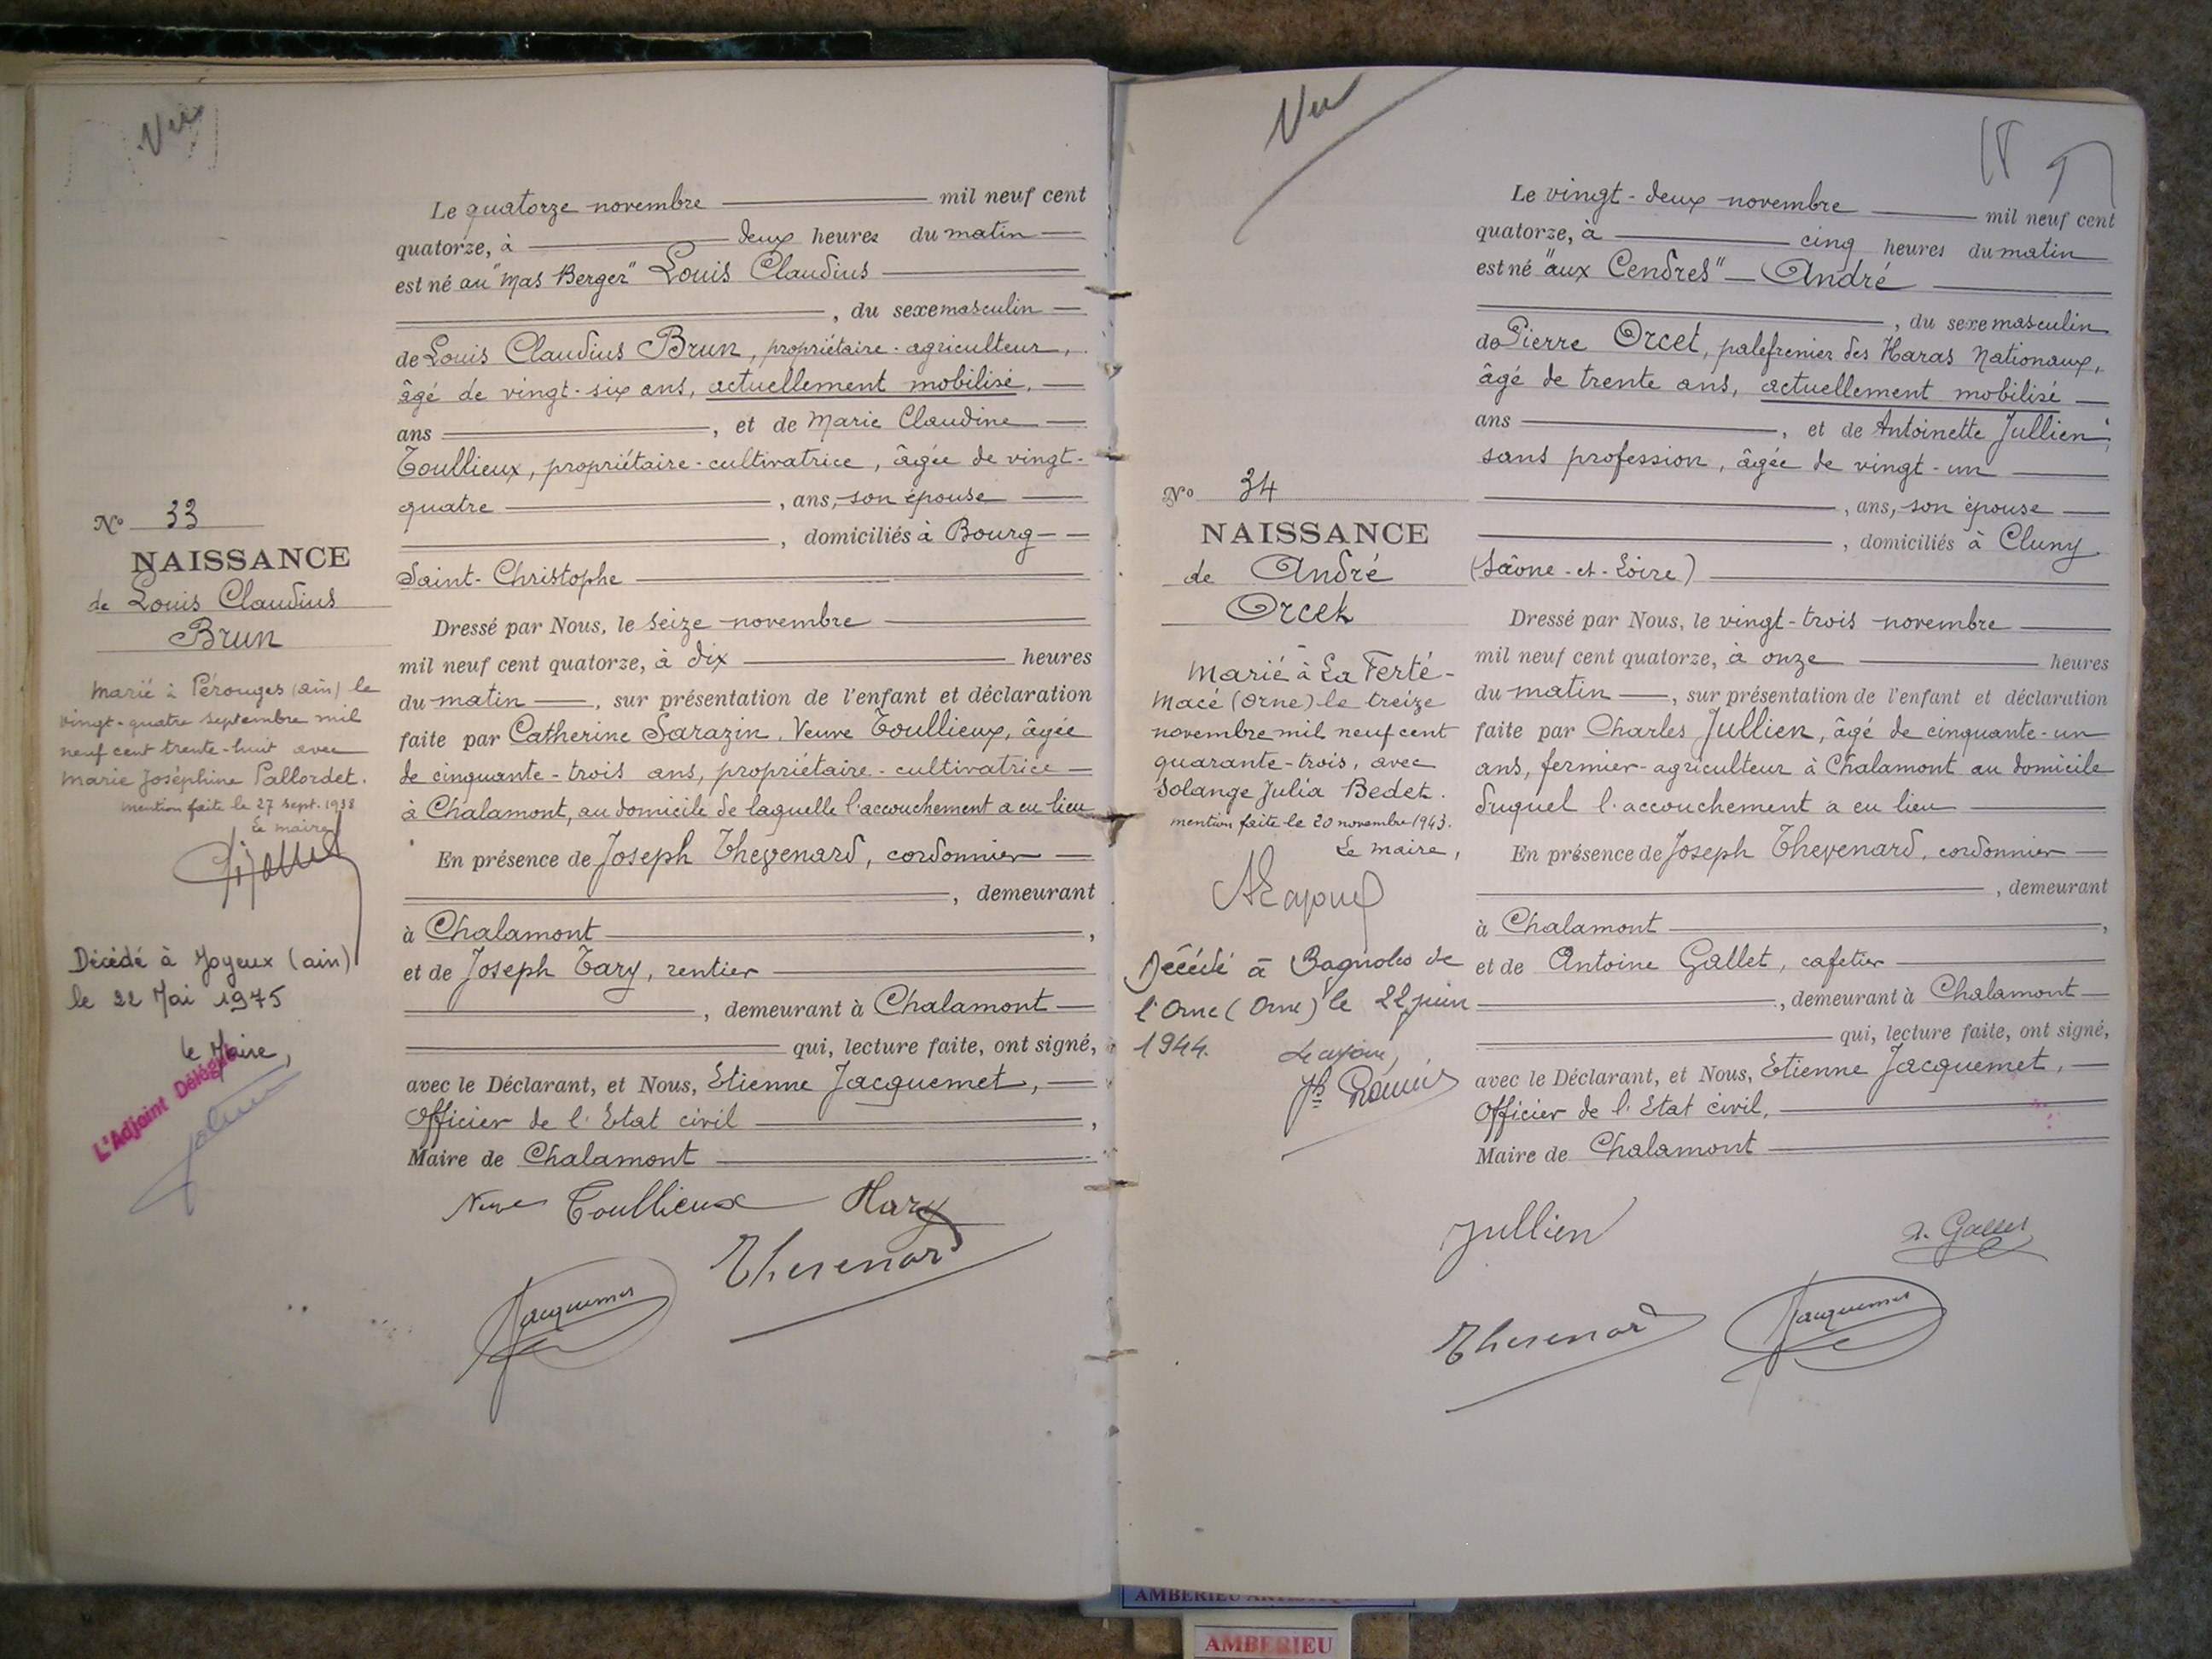 Vu
Le quatorze novembre mil neuf cent
quatorze, à deux heures du matin
est né au "Mas Berger" Louis Claudius
, du sexe masculin
de Louis Claudius Brun, propriétaire-agriculteur,
âgé de vingt-six ans, actuellement mobilisé,
ans , et de Marie Claudine
Toullieux, propriétaire-cultivatrice, âgée de vingt-
quatre , ans, son épouse
, domiciliés à Bourg-
Saint-Christophe
Dressé par Nous, le seize novembre
mil neuf cent quatorze, à dix heures
du matin , sur présentation de l'enfant et déclaration
faite par Catherine Sarazin, Veuve Toullieux, âgée
de cinquante-trois ans, propriétaire-cultivatrice
à Chalamont, au domicile de laquelle l'accouchement a eu lieu
En présence de Joseph Thevenard, cordonnier
, demeurant
à Chalamont ,
et de Joseph Tary, rentier
, demeurant à Chalamont
qui, lecture faite, ont signé,
avec le Déclarant, et Nous, Etienne Jacquemet,
Officier de l'Etat civil ,
Maire de Chalamont
Toullieux
Thevenard
Jacquemet
No 33
NAISSANCE
de Louis Claudius
Brun
Marié à Pérouges (ain) le
vingt-quatre septembre mil
neuf cent trente-huit avec
Marie Joséphine Pallordet.
mention faite le 27 sept. 1938
Le maire
Décédé à Joyeux (ain)
le 22 Mai 1975
le Maire,
L'Adjoint Délégué
Vu
Le vingt-deux novembre mil neuf cent
quatorze, à cinq heures du matin
est né "aux Cendres" — André
, du sexe masculin
de Pierre Orcet, palefrenier des Haras Nationaux,
âgé de trente ans, actuellement mobilisé
ans , et de Antoinette Jullien,
sans profession, âgée de vingt-un
, ans, son épouse
, domiciliés à Cluny
(Saône-et-Loire)
Dressé par Nous, le vingt-trois novembre
mil neuf cent quatorze, à onze heures
du matin , sur présentation de l'enfant et déclaration
faite par Charles Jullien, âgé de cinquante-un
ans, fermier-agriculteur à Chalamont au domicile
duquel l'accouchement a eu lieu
En présence de Joseph Thevenard, cordonnier
, demeurant
à Chalamont ,
et de Antoine Gallet, cafetier
, demeurant à Chalamont
qui, lecture faite, ont signé,
avec le Déclarant, et Nous, Etienne Jacquemet,
Officier de l'Etat civil,
Maire de Chalamont
Jullien
A. Gallet
Thevenard
Jacquemet
No 34
NAISSANCE
de André
Orcet
Marié à La Ferté-
Macé (Orne) le treize
novembre mil neuf cent
quarante-trois, avec
Solange Julia Bedet.
mention faite le 20 novembre 1943.
Le maire,
Décédé à Bagnoles de
l'Orne (Orne) le 22 juin
1944.
Le maire,
AMBERIEU
AMBERIEU